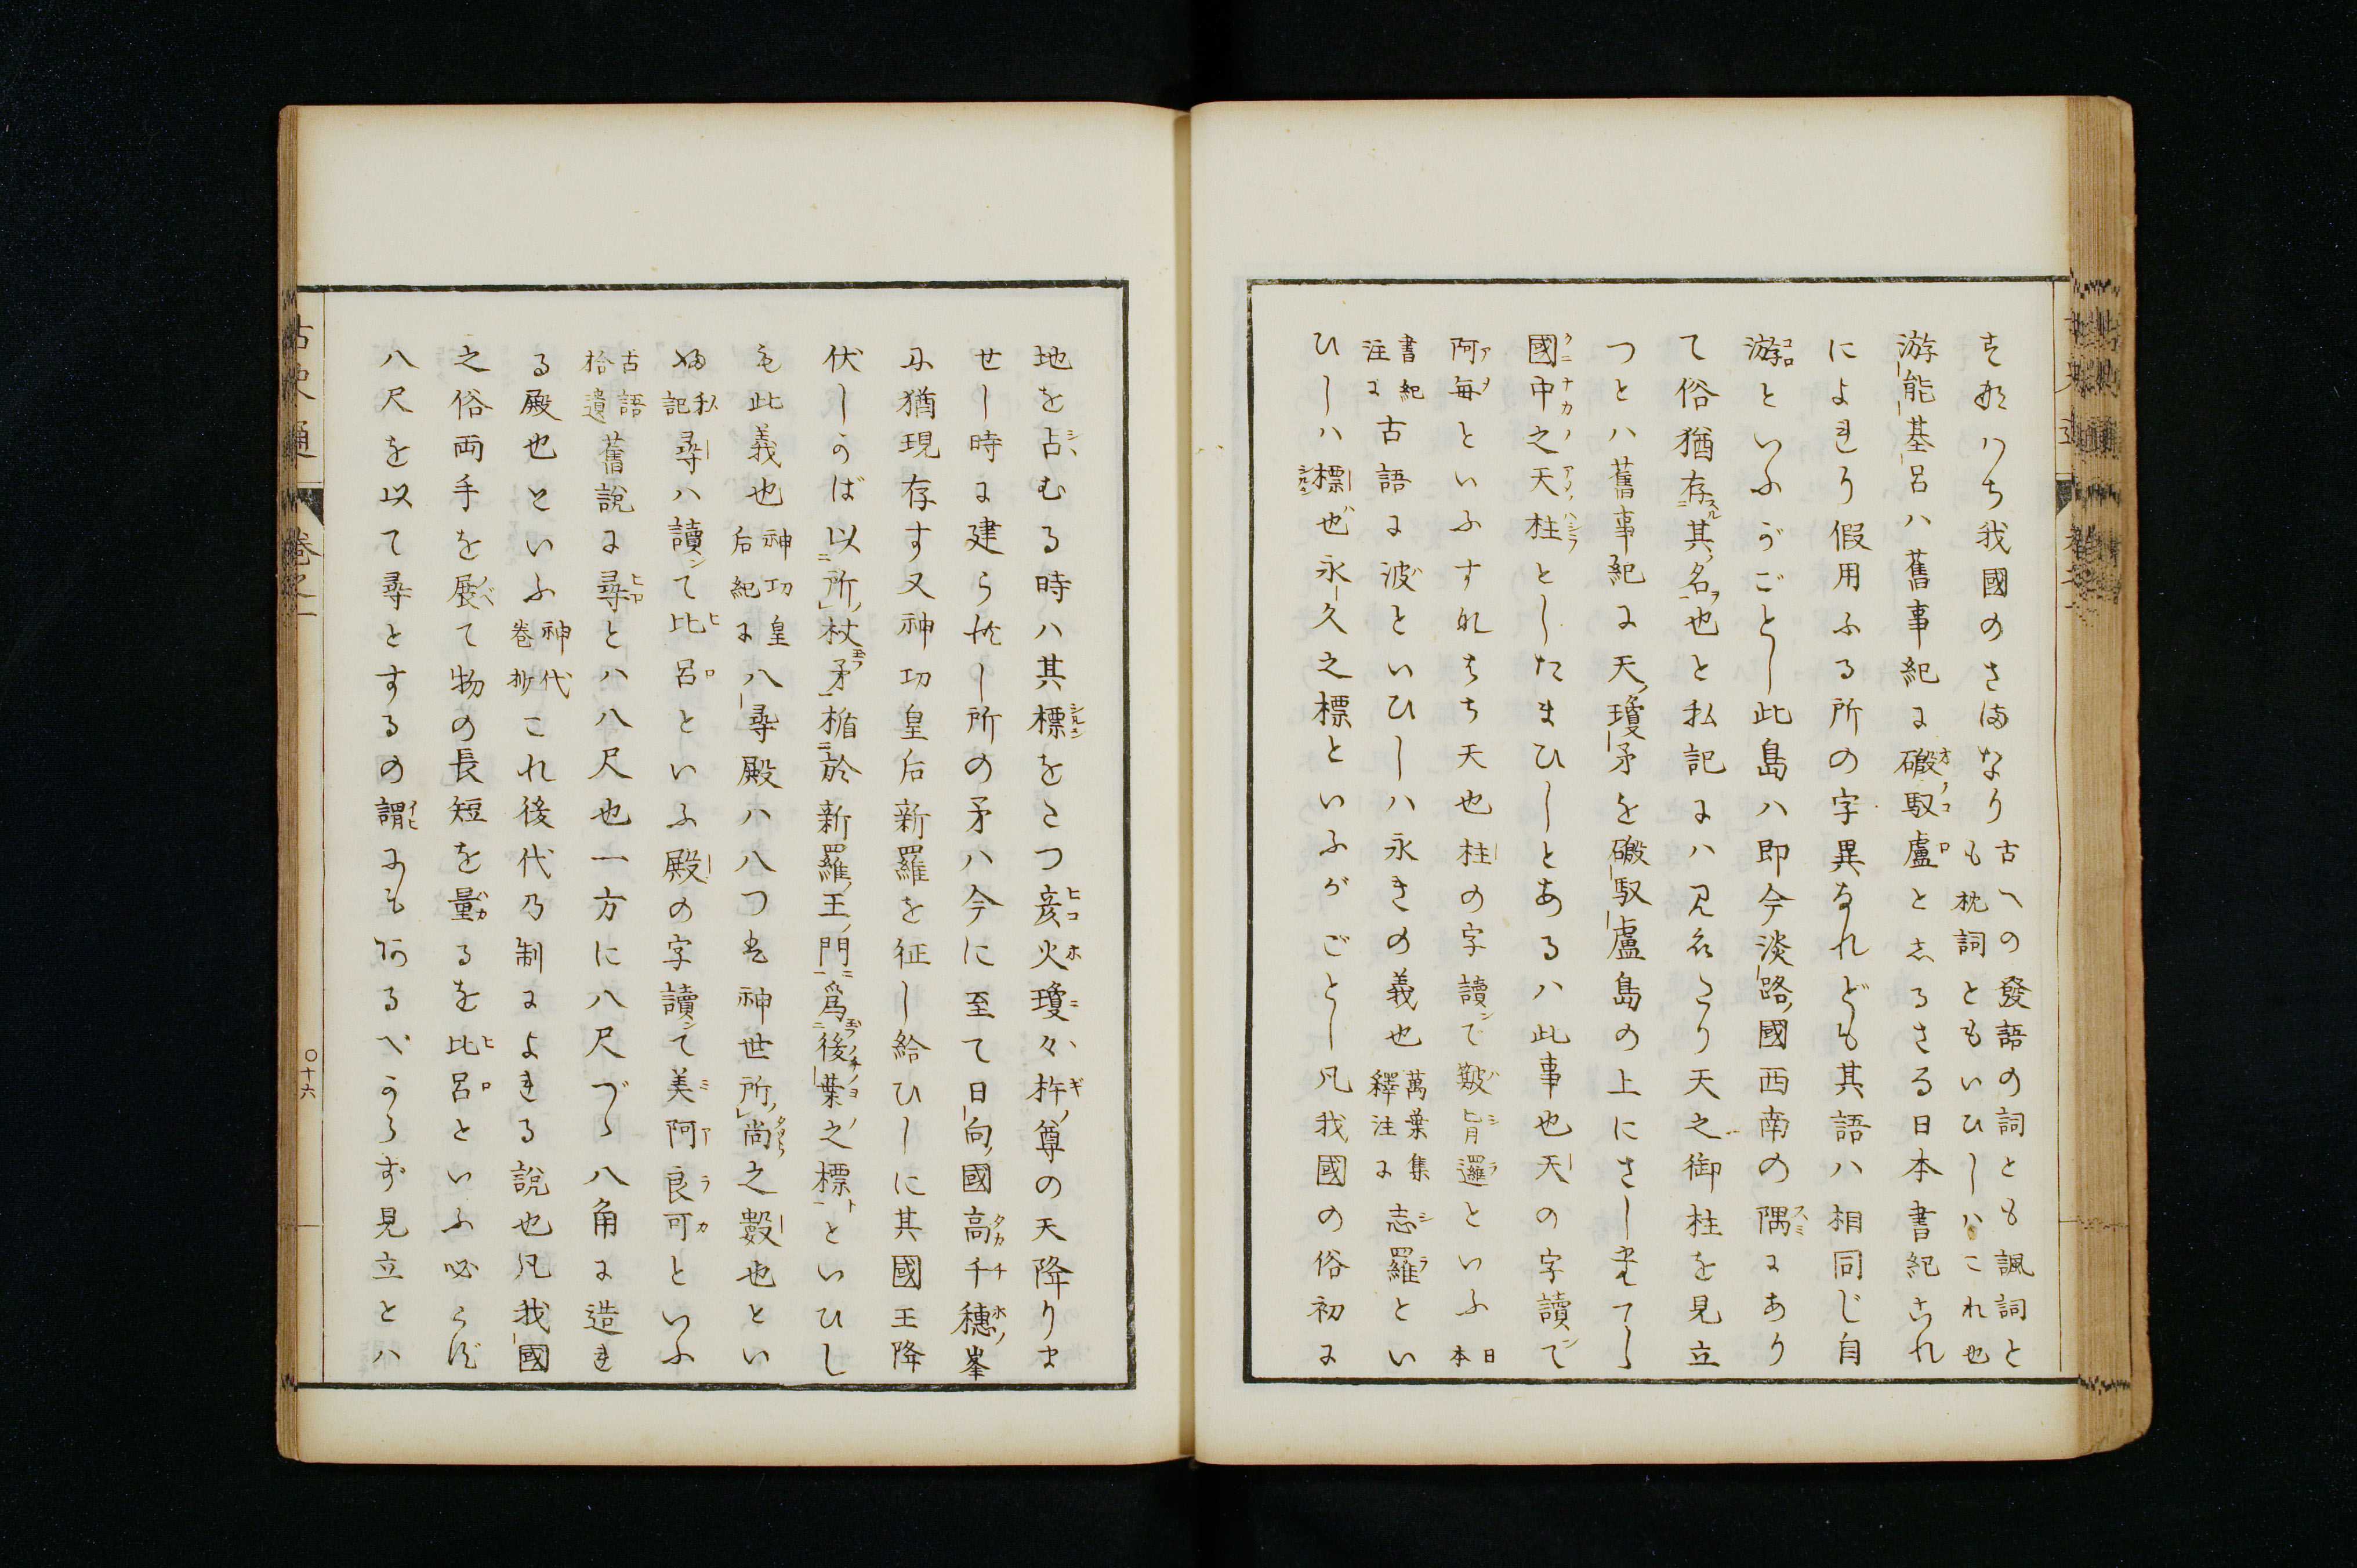 すなハち我國のさまなり古への發語の詞とも諷詞とも枕詞ともいひしハこれ也
游能基呂ハ舊事紀に磤馭盧としるさる日本書紀これ
によれり假用ふる所の字異なれども其語ハ相同じ自
游といふがごとし此島ハ即今淡路國西南の隅にあり
て俗猶存其名也と私記にハ見えたり天之御柱を見立
つとハ舊事紀に天瓊矛を磤馭盧島の上にさし立てゝ
國中之天柱としたまひしとあるハ此事也天の字讀で
阿毎といふすなはち天也柱の字讀で簸旨邏といふ日本
書紀注に古語に波といひしハ永きの義也萬葉集釋注に志羅とい
ひしハ標也永久之標といふがごとし凡我國の俗初に
地を占むる時ハ其標をたつ彦火瓊々杵尊の天降りま
せし時に建られし所の矛ハ今に至て日向國高千穂峯
に猶現存す又神功皇后新羅を征し給ひしに其國王降
伏しのば以所杖矛楯於新羅王門爲後葉之標といひし
も此義也神功皇后紀に八尋殿ハ八つは神世所尚之數也とい
ふ私記尋ハ讀て比呂といふ殿の字讀て美阿良可といふ
古語拾遺舊說に尋とハ八尺也一方に八尺づゝ八角に造れ
る殿也といふ神代卷抄これ後代乃制によれる說也凡我國
之俗両手を展て物の長短を量るを比呂といふ必しも
八尺を以て尋とするの謂にもあるべからず見立とハ
古史通
卷之一
〇十六